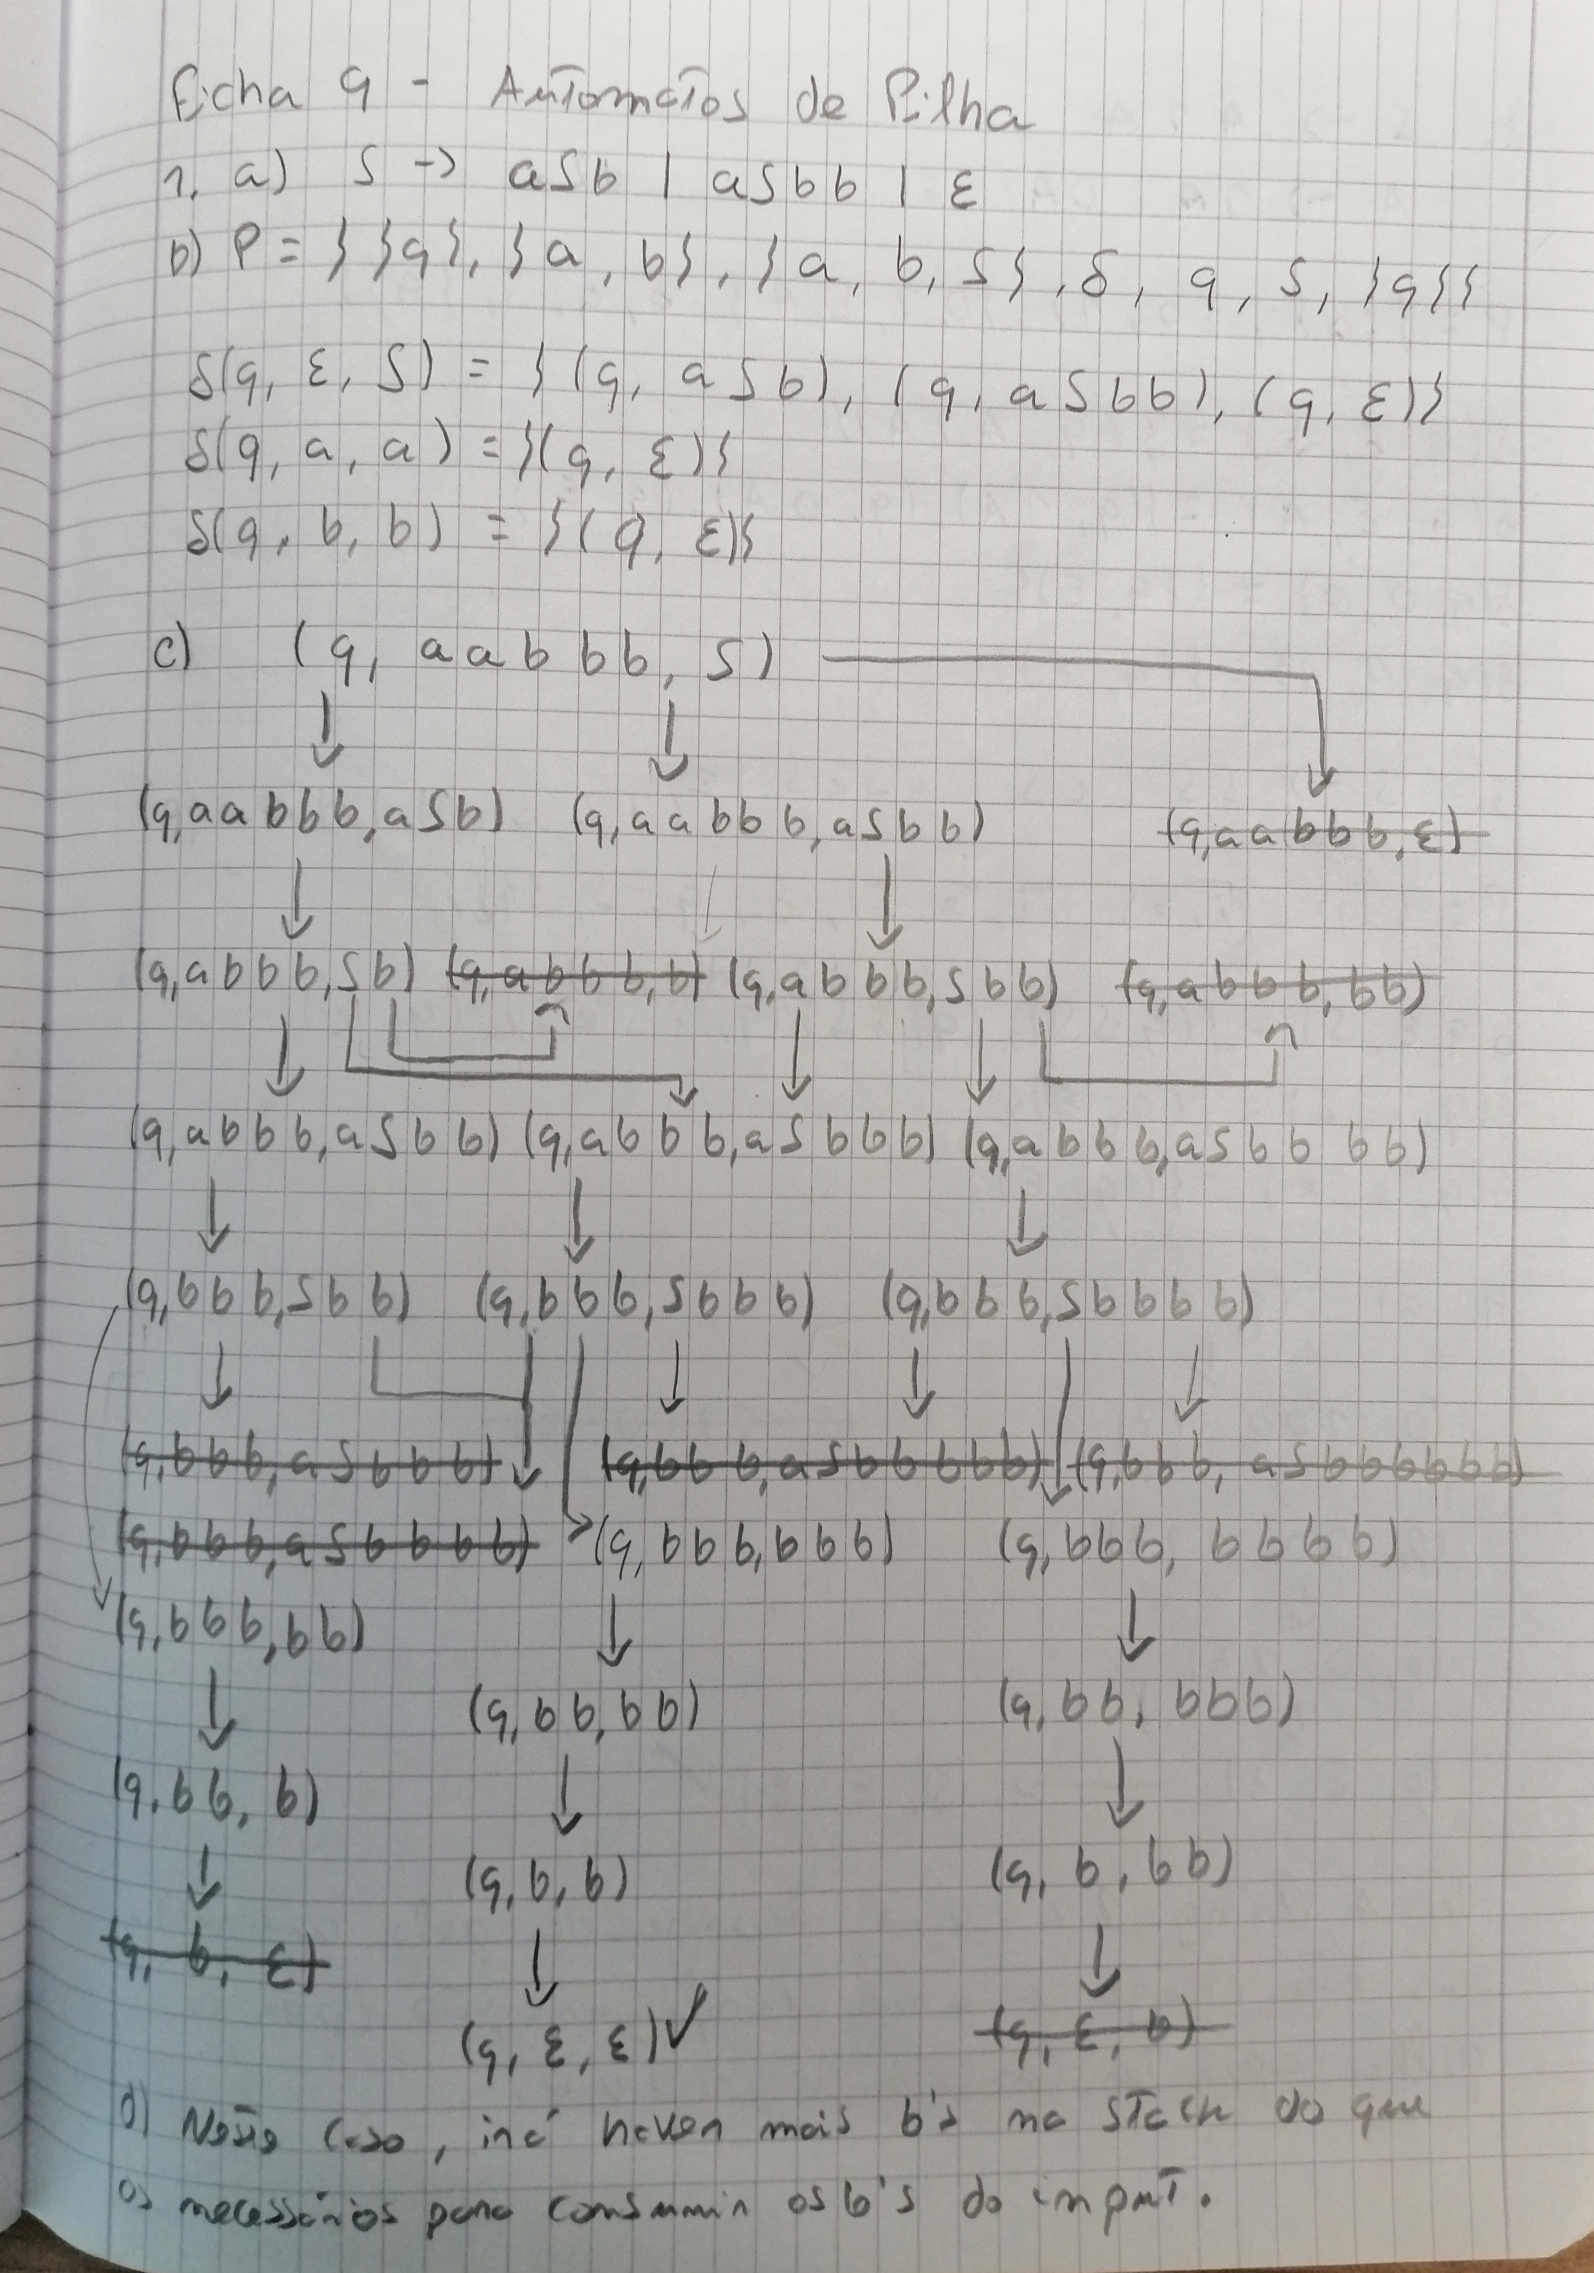 Ficha 9 - Autómatos de Pilha
1. a) S -> aSb | aSbb | ε
b) P = {{q}, {a, b}, {a, b, S}, δ, q, S, {q}}
δ(q, ε, S) = {(q, aSb), (q, aSbb), (q, ε)}
δ(q, a, a) = {(q, ε)}
δ(q, b, b) = {(q, ε)}
c) (q, aabbb, S)
(q,aabbb,aSb) (q,aabbb,aSbb) (q,aabbb,ε)
(q,abbb,Sb) (q,abbb,b) (q,abbb,Sbb) (q,abbb,bb)
(q,abbb,aSbb) (q,abbb,aSbbb) (q,abbb,aSbbbb)
(q,bbb,Sbb) (q,bbb,Sbbb) (q,bbb,Sbbbb)
(q,bbb,aSbbb) (q,bbb,aSbbbbb) (q,bbb,aSbbbbbb)
(q,bbb,aSbbbb) (q,bbb,bbb) (q,bbb,bbbb)
(q,bbb,bb)
(q,bb,bb) (q,bb,bbb)
(q,bb,b)
(q,b,b) (q,b,bb)
(q,b,ε)
(q,ε,ε)✓ (q,ε,b)
d) Neste caso, irá haver mais b's na stack do que
os necessários para consumir os b's do input.